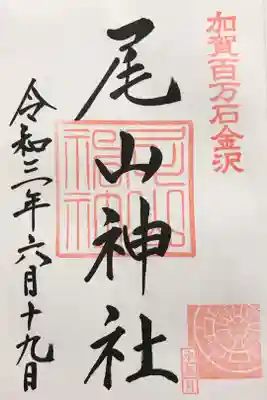 加賀百万石金沢
尾山神社
令和三年六月十九日